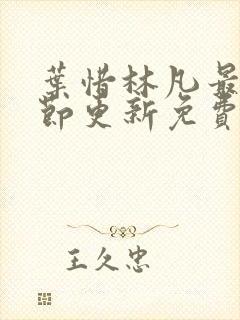 葉惜林凡最
節更新免費
王久忠